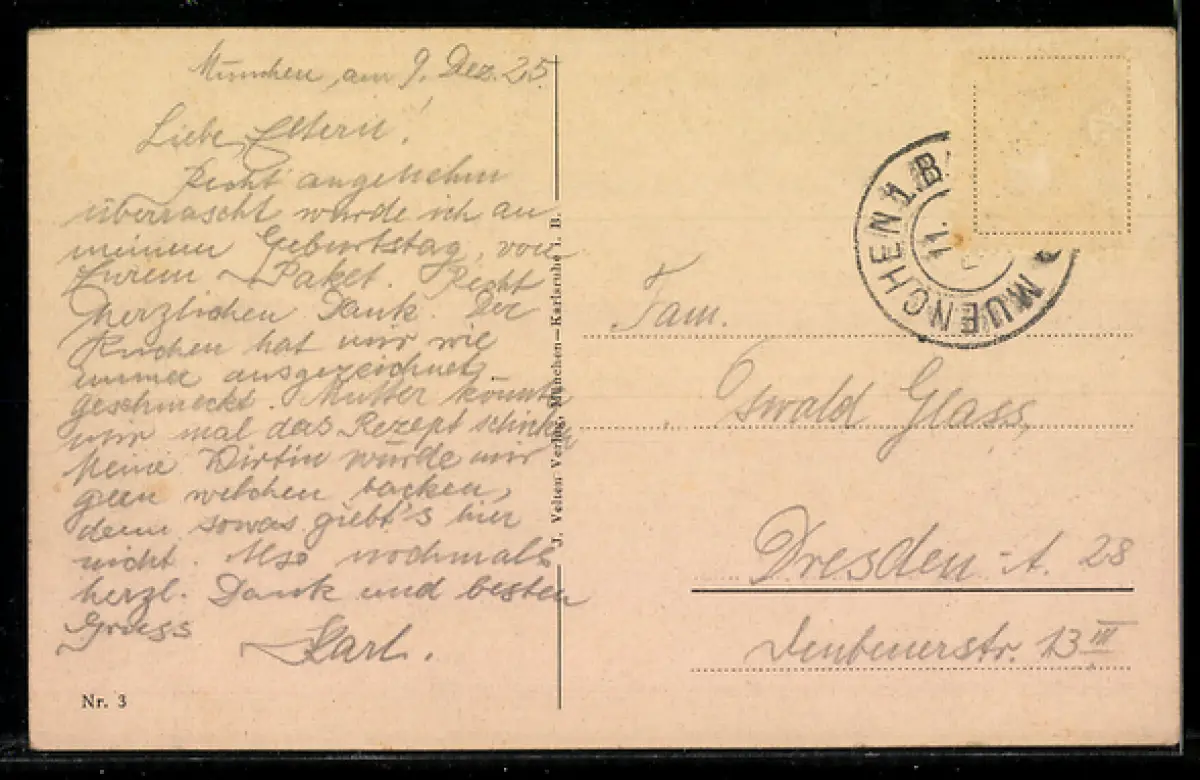 München, am 9. Dez. 25
Liebe Eltern!
Recht angenehm
überrascht wurde ich an
meinem Geburtstag, von
Eurem Paket. Recht
herzlichen Dank. Der
Kuchen hat mir wie
immer ausgezeichnet
geschmeckt. Mutter könnte
mir mal das Rezept schicken
Meine Wirtin würde mir
gern welchen backen,
denn sowas giebt's hier
nicht. Also nochmals
herzl. Dank und besten
Gruss
Karl.
Nr. 3
J. Velten Verlag, München—Karlsruhe i. B.
MUENCHEN 1. B
11
Fam.
Oswald Glass,
Dresden-A. 28
13 III